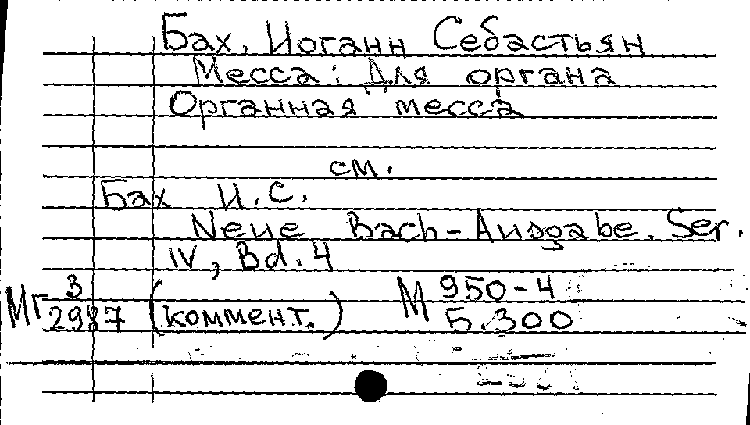 Бах, Иоганн Себастьян
Месса: Для органа
Органная месса
см.
Бах И.С.
Neue Bach-Ausgabe. Ser.
IV, Bd. 4
МГ 3/2987 (коммент.) М 950-4/5.300